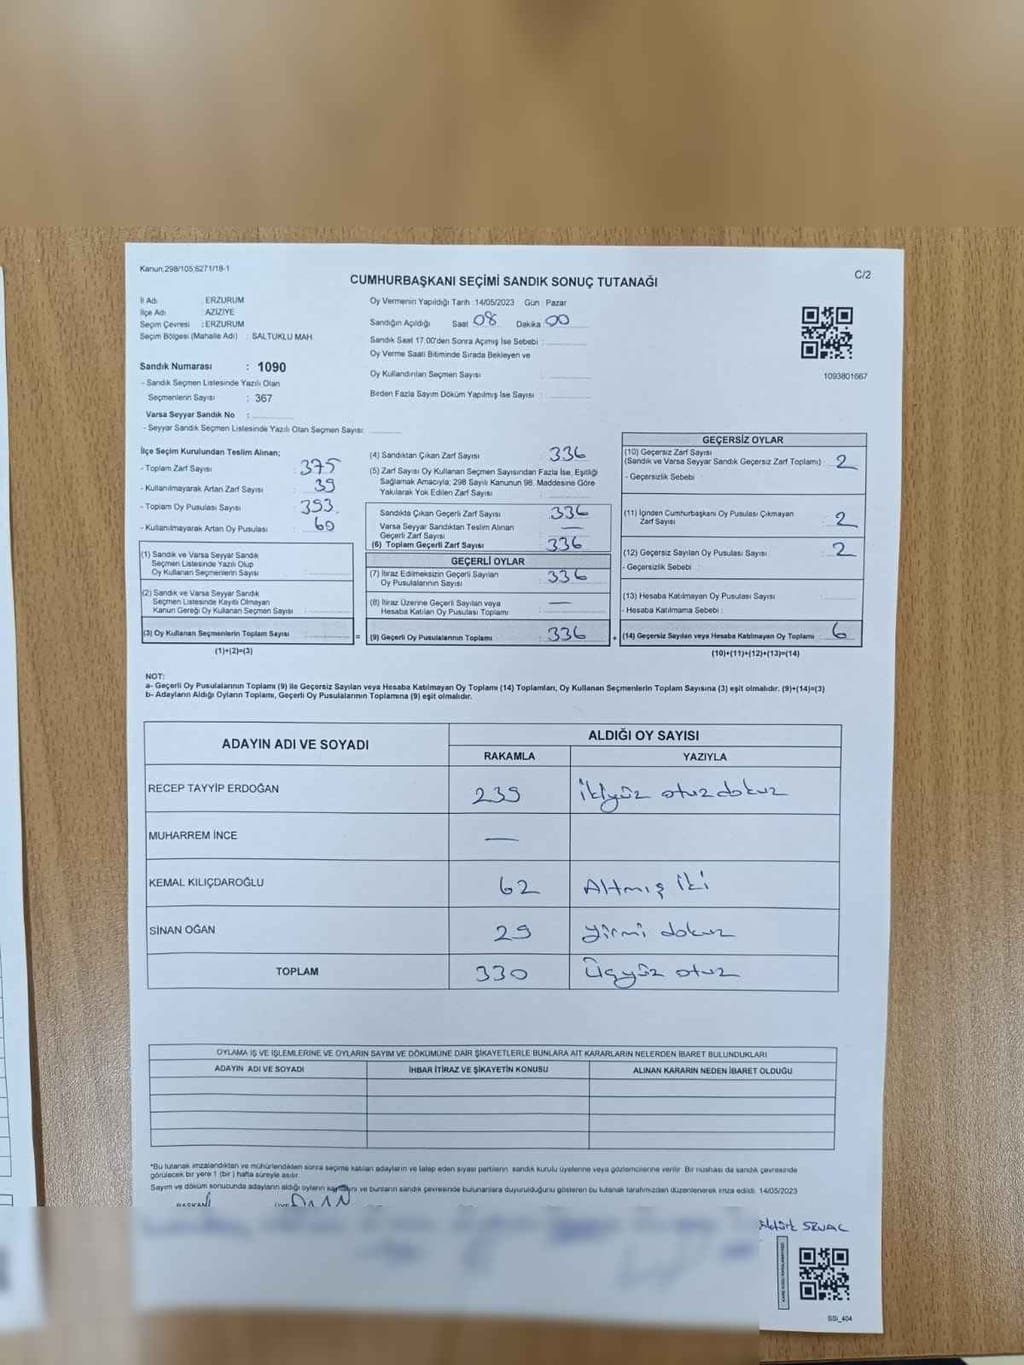 Kanun:298/105;6271/18-1
C/2
CUMHURBAŞKANI SEÇİMİ SANDIK SONUÇ TUTANAĞI
İl Adı ERZURUM
İlçe Adı AZİZİYE
Seçim Çevresi : ERZURUM
Seçim Bölgesi (Mahalle Adı) : SALTUKLU MAH
Sandık Numarası : 1090
- Sandık Seçmen Listesinde Yazılı Olan
Seçmenlerin Sayısı : 367
Varsa Seyyar Sandık No :
- Seyyar Sandık Seçmen Listesinde Yazılı Olan Seçmen Sayısı:
Oy Vermenin Yapıldığı Tarih :14/05/2023 Gün : Pazar
Sandığın Açıldığı Saat 08 Dakika 00
Sandık Saat 17.00'den Sonra Açımış İse Sebebi :
Oy Verme Saati Bitiminde Sırada Bekleyen ve
Oy Kullandırılan Seçmen Sayısı :
Birden Fazla Sayım Döküm Yapılmış İse Sayısı :
1093801667
İlçe Seçim Kurulundan Teslim Alınan;
- Toplam Zarf Sayısı : 375
- Kullanılmayarak Artan Zarf Sayısı : 39
- Toplam Oy Pusulası Sayısı : 393
- Kullanılmayarak Artan Oy Pusulası : 60
(1) Sandık ve Varsa Seyyar Sandık
Seçmen Listesinde Yazılı Olup
Oy Kullanan Seçmenlerin Sayısı :
(2) Sandık ve Varsa Seyyar Sandık
Seçmen Listesinde Kayıtlı Olmayan
Kanun Gereği Oy Kullanan Seçmen Sayısı :
(3) Oy Kullanan Seçmenlerin Toplam Sayısı =
(1)+(2)=(3)
(4) Sandıktan Çıkan Zarf Sayısı : 336
(5) Zarf Sayısı Oy Kullanan Seçmen Sayısından Fazla İse, Eşitliği
Sağlamak Amacıyla; 298 Sayılı Kanunun 98. Maddesine Göre
Yakılarak Yok Edilen Zarf Sayısı :
Sandıkta Çıkan Geçerli Zarf Sayısı : 336
Varsa Seyyar Sandıktan Teslim Alınan
Geçerli Zarf Sayısı : —
(6) Toplam Geçerli Zarf Sayısı : 336
GEÇERLİ OYLAR
(7) İtiraz Edilmeksizin Geçerli Sayılan
Oy Pusulalarının Sayısı : 336
(8) İtiraz Üzerine Geçerli Sayılan veya
Hesaba Katılan Oy Pusulası Toplamı : —
(9) Geçerli Oy Pusulalarının Toplamı : 336 +
GEÇERSİZ OYLAR
(10) Geçersiz Zarf Sayısı
(Sandık ve Varsa Seyyar Sandık Geçersiz Zarf Toplamı) : 2
- Geçersizlik Sebebi :
(11) İçinden Cumhurbaşkanı Oy Pusulası Çıkmayan
Zarf Sayısı : 2
(12) Geçersiz Sayılan Oy Pusulası Sayısı : 2
- Geçersizlik Sebebi :
(13) Hesaba Katılmayan Oy Pusulası Sayısı :
- Hesaba Katılmama Sebebi :
(14) Geçersiz Sayılan veya Hesaba Katılmayan Oy Toplamı : 6
(10)+(11)+(12)+(13)=(14)
NOT:
a- Geçerli Oy Pusulalarının Toplamı (9) ile Geçersiz Sayılan veya Hesaba Katılmayan Oy Toplamı (14) Toplamları, Oy Kullanan Seçmenlerin Toplam Sayısına (3) eşit olmalıdır. (9)+(14)=(3)
b- Adayların Aldığı Oyların Toplamı, Geçerli Oy Pusulalarının Toplamına (9) eşit olmalıdır.
ADAYIN ADI VE SOYADI ALDIĞI OY SAYISI
RAKAMLA YAZIYLA
RECEP TAYYİP ERDOĞAN 239 ikiyüz otuzdokuz
MUHARREM İNCE —
KEMAL KILIÇDAROĞLU 62 Altmış iki
SİNAN OĞAN 29 yirmi dokuz
TOPLAM 330 Üçyüz otuz
OYLAMA İŞ VE İŞLEMLERİNE VE OYLARIN SAYIM VE DÖKÜMÜNE DAİR ŞİKAYETLERLE BUNLARA AİT KARARLARIN NELERDEN İBARET BULUNDUKLARI
ADAYIN ADI VE SOYADI İHBAR İTİRAZ VE ŞİKAYETİN KONUSU ALINAN KARARIN NEDEN İBARET OLDUĞU
*Bu tutanak imzalandıktan ve mühürlendikten sonra seçime katılan adayların ve talep eden siyasi partilerin sandık kurulu üyelerine veya gözlemcilerine verilir. Bir nushası da sandık çevresinde
görülecek bir yere 1 (bir ) hafta süreyle asılır.
Sayım ve döküm sonucunda adayların aldığı oyların sayısını ve bunların sandık çevresinde bulunanlara duyurulduğunu gösteren bu tutanak tarafımızdan düzenlenerek imza edildi. 14/05/2023
BAŞKAN
SSI_404